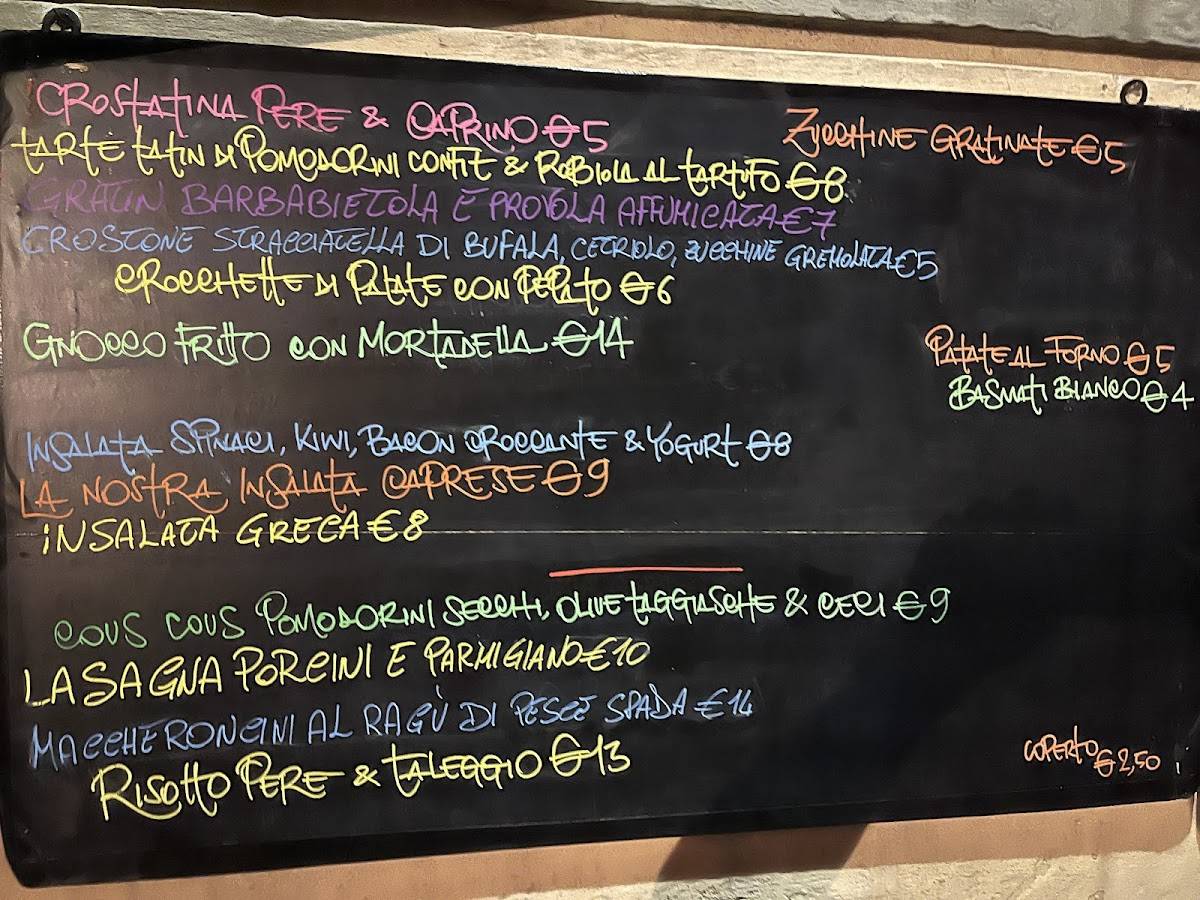 CROSTATINA PERE & CAPRINO €5
ZUCCHINE GRATINATE €5
TARTE TATIN DI POMODORINI CONFIT & ROBIOLA AL TARTUFO €8
GRATIN BARBABIETOLA E PROVOLA AFFUMICATA €7
CROSTONE STRACCIATELLA DI BUFALA, CETRIOLO, ZUCCHINE GREMOLATA €5
CROCCHETTE DI PATATE CON PEPATO €6
GNOCCO FRITTO CON MORTADELLA €14
PATATE AL FORNO €5
BASMATI BIANCO €4
INSALATA SPINACI, KIWI, BACON CROCCANTE & YOGURT €8
LA NOSTRA INSALATA CAPRESE €9
INSALATA GRECA €8
COUS COUS POMODORINI SECCHI, OLIVE TAGGIASCHE & CECI €9
LASAGNA PORCINI E PARMIGIANO €10
MACCHERONCINI AL RAGÙ DI PESCE SPADA €14
RISOTTO PERE & TALEGGIO €13
COPERTO €2,50